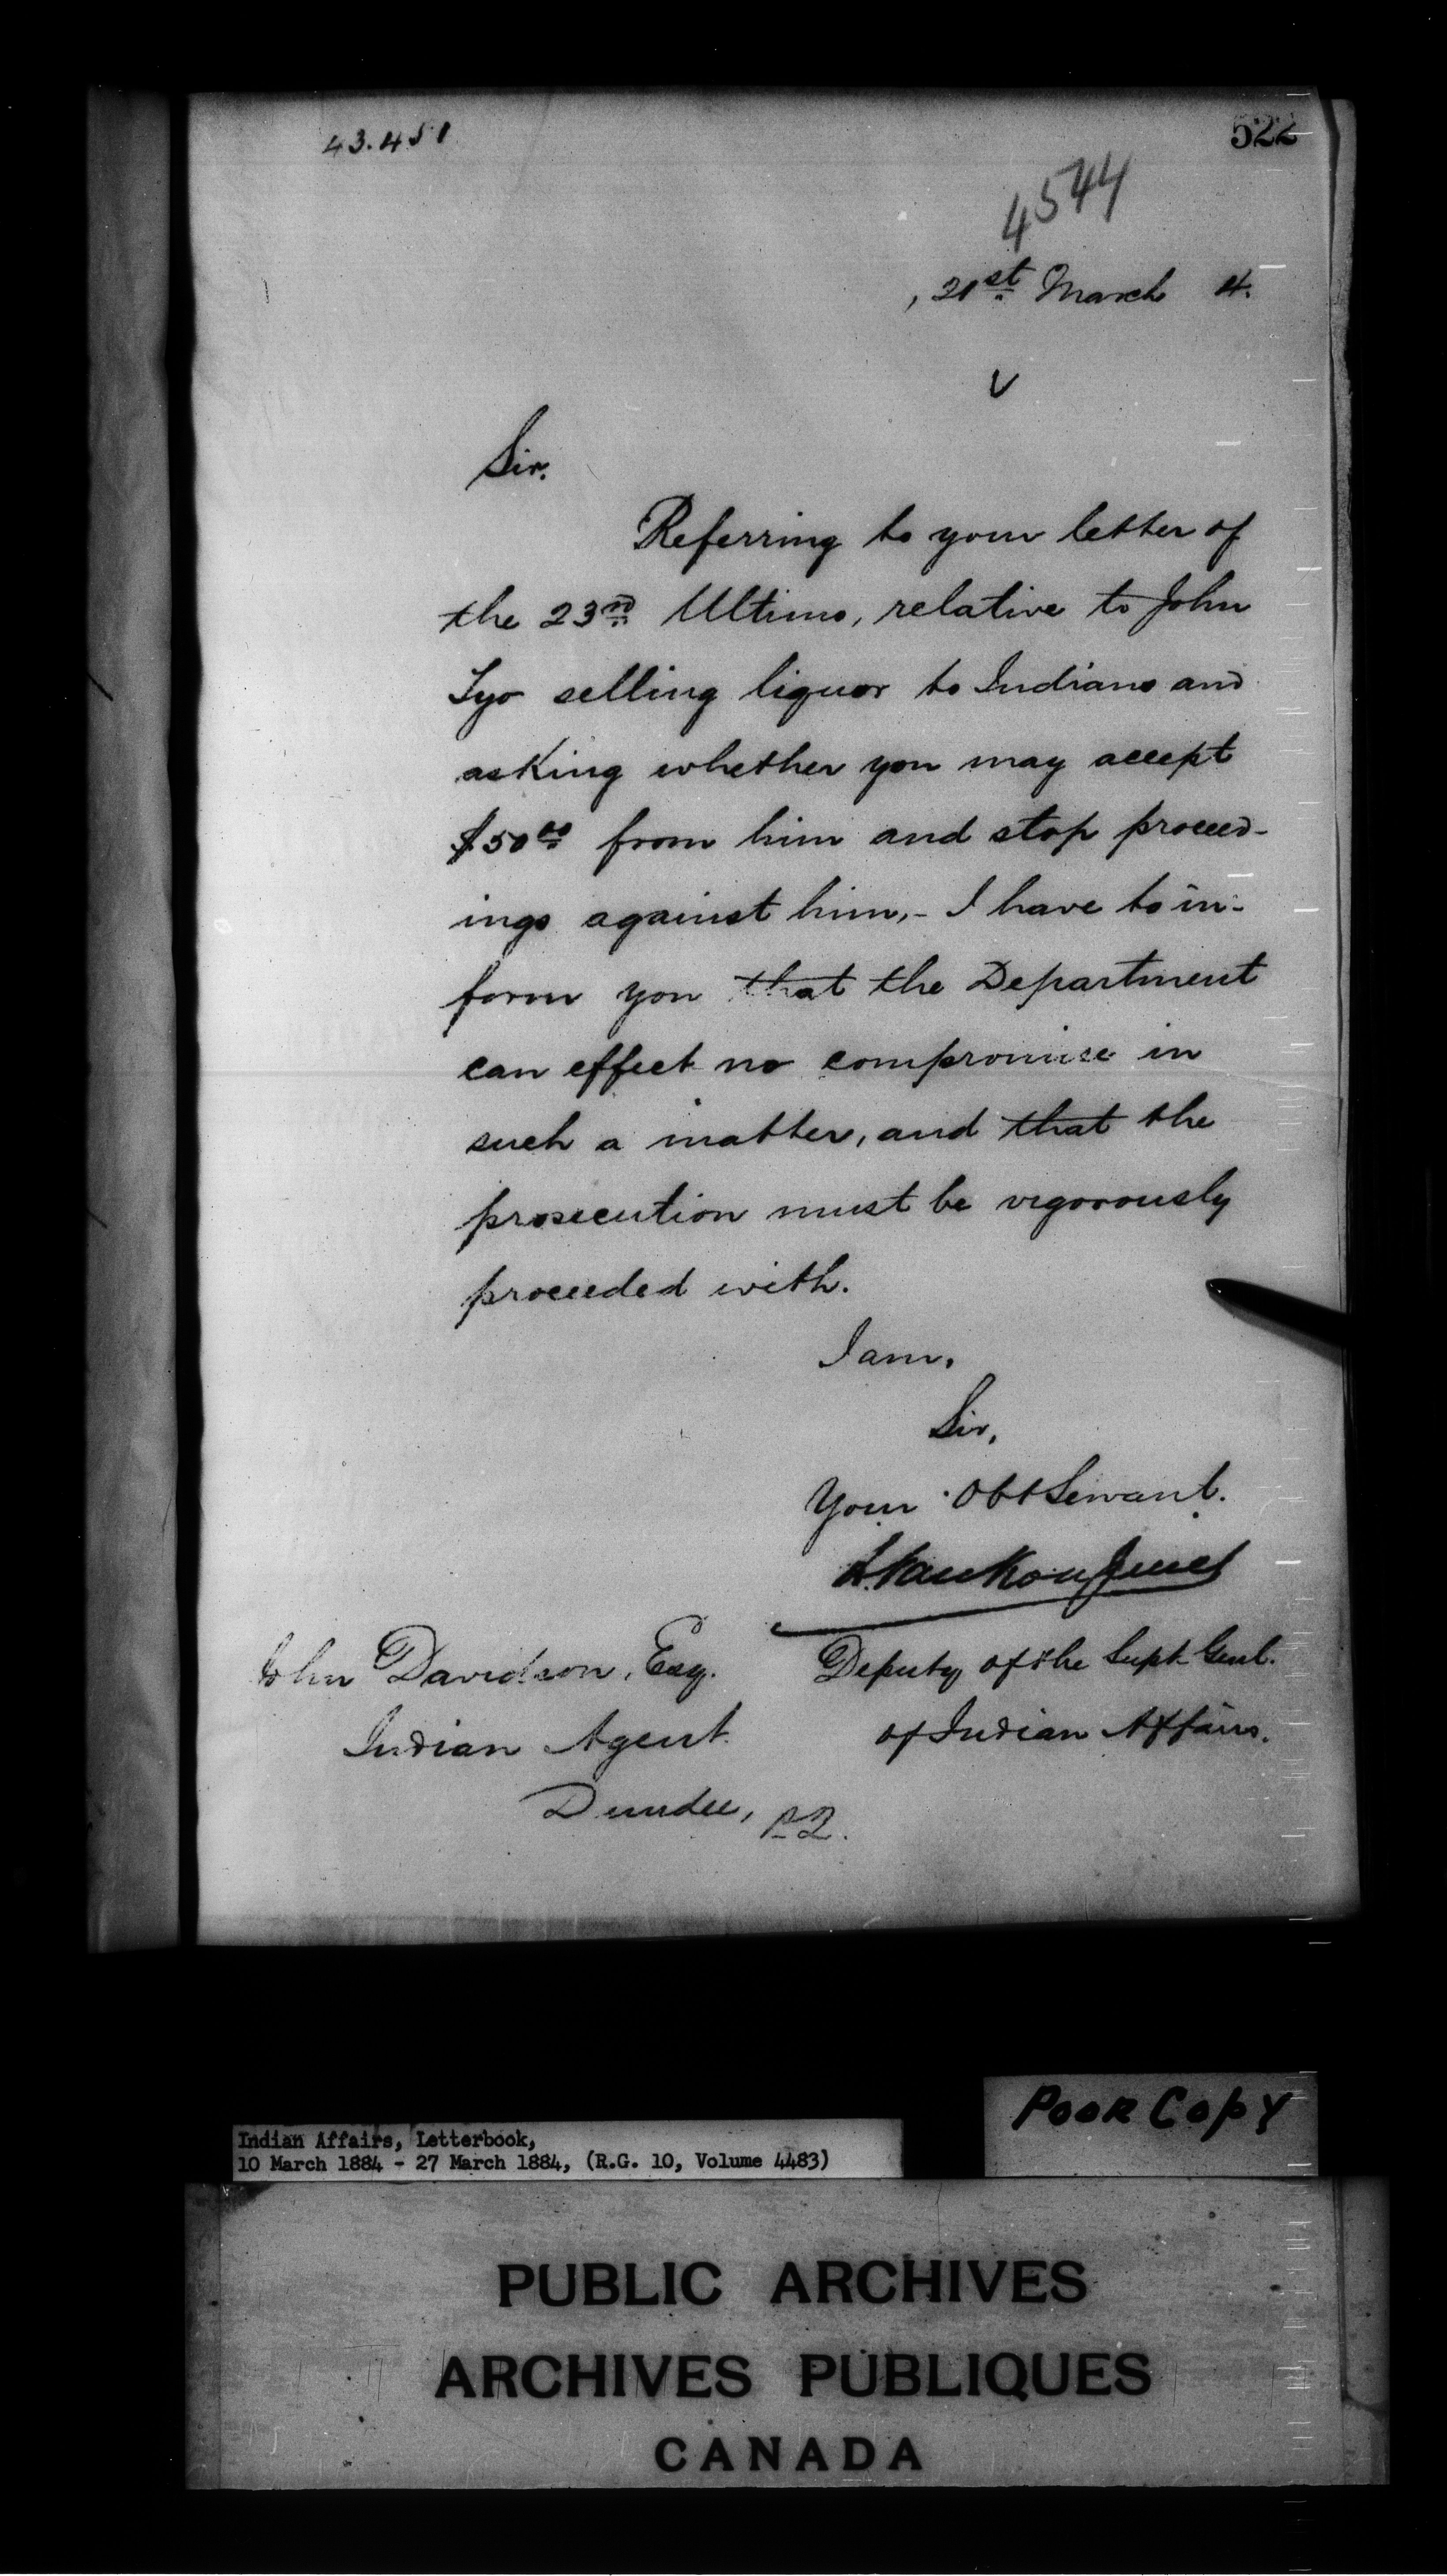 43.451
522
4544
, 21st March 4.
Sir.
Referring to your letter of
the 23rd Ultimo, relative to John
Tyo selling liquor to Indians and
asking whether you may accept
$50.00 from him and stop proceed-
ings against him,- I have to in-
form you that the Department
can effect no compromise in
such a matter, and that the
prosecution must be vigorously
proceeded with.
I am,
Sir,
Your Obt Servant.
L. VanKoughnet
John Davidson, Esq.
Deputy of the Supt Genl.
Indian Agent.
of Indian Affairs.
Dundee, P.Q.
Poor Copy
Indian Affairs, Letterbook,
10 March 1884 - 27 March 1884, (R.G. 10, Volume 4483)
PUBLIC ARCHIVES
ARCHIVES PUBLIQUES
CANADA